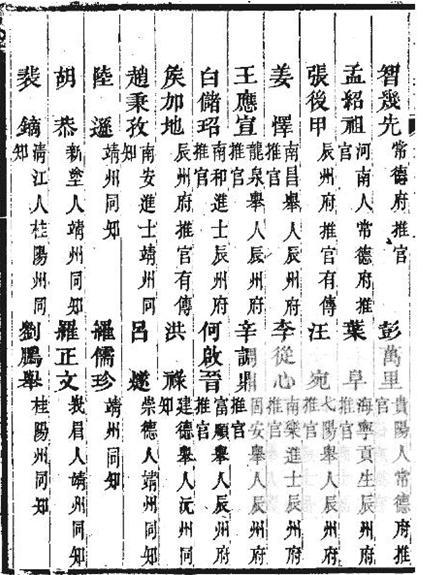 智幾先 常德府推官 彭萬里 貴陽人常德府推官
孟紹祖 河南人常德府推官 葉阜 海寧貢生辰州府推官
張後甲 辰州府推官有傳 汪宛 弋陽舉人辰州府推官
姜懌 南昌舉人辰州府推官 李從心 南樂進士辰州府推官
王應宣 龍泉舉人辰州府推官 辛調鼎 固安舉人辰州府推官
白儲玿 南和進士辰州府推官 何啟晉 富順舉人辰州府推官
侯加地 辰州府推官有傳 洪祿 建德舉人沅州同知
趙秉孜 南安進士靖州同知 呂燧 崇德人靖州同知
陸遜 靖州同知 羅儒珍 靖州同知
胡恭 新塗人靖州同知 羅正文 峩眉人靖州同知
裴鏑 清江人桂陽州同知 劉鵬舉 桂陽州同知